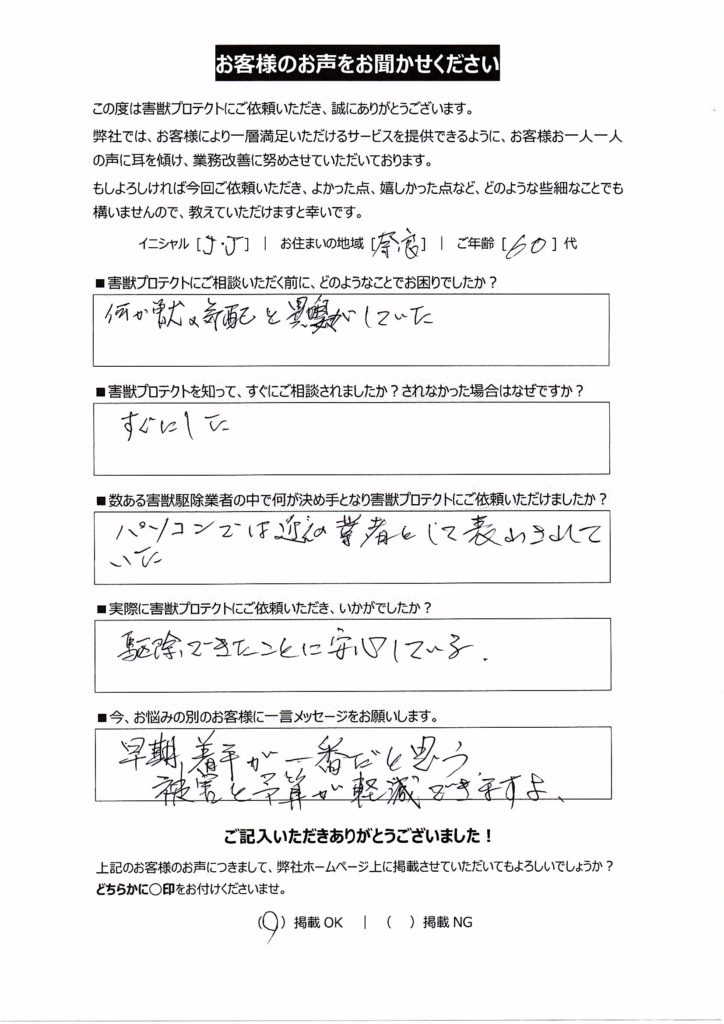 お客様のお声をお聞かせください
この度は害獣プロテクトにご依頼いただき、誠にありがとうございます。
弊社では、お客様により一層満足いただけるサービスを提供できるように、お客様お一人一人
の声に耳を傾け、業務改善に努めさせていただいております。
もしよろしければ今回ご依頼いただき、よかった点、嬉しかった点など、どのような些細なことでも
構いませんので、教えていただけますと幸いです。
イニシャル [J・J] | お住まいの地域 [奈良] | ご年齢 [60] 代
■害獣プロテクトにご相談いただく前に、どのようなことでお困りでしたか？
何か獣の気配と異臭がしていた
■害獣プロテクトを知って、すぐにご相談されましたか？されなかった場合はなぜですか？
すぐにした
■数ある害獣駆除業者の中で何が決め手となり害獣プロテクトにご依頼いただけましたか？
パソコンでは近くの業者として表わされて
いた
■実際に害獣プロテクトにご依頼いただき、いかがでしたか？
駆除できたことに安心している.
■今、お悩みの別のお客様に一言メッセージをお願いします。
早期着手が一番だと思う
被害と予算が軽減できますよ、
ご記入いただきありがとうございました！
上記のお客様のお声につきまして、弊社ホームページ上に掲載させていただいてもよろしいでしょうか？
どちらかに〇印をお付けくださいませ。
(〇) 掲載 OK | ( ) 掲載 NG